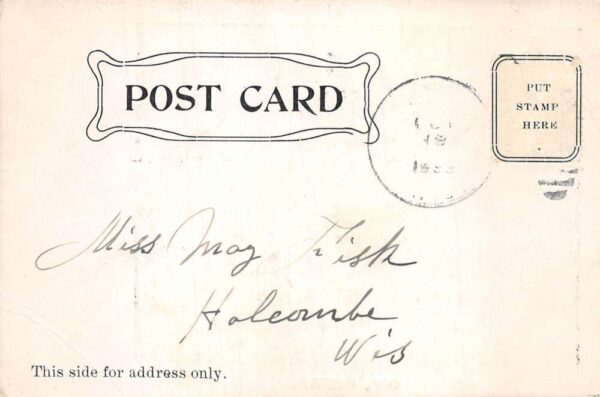 POST CARD
PUT
STAMP
HERE
19
Miss May Fisk
Holcombe
Wis
This side for address only.